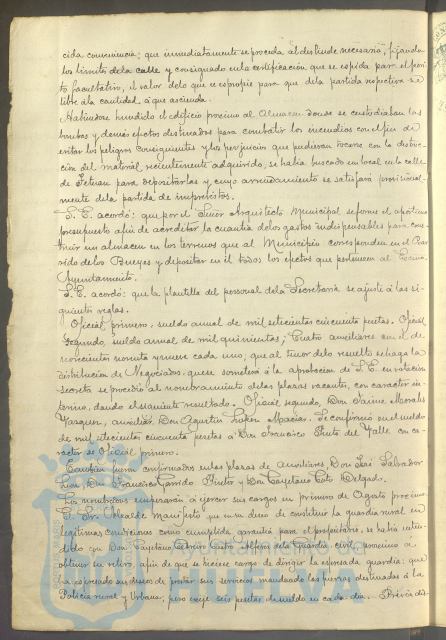 cida conveniencia; que inmediatamente se proceda al deslinde necesario, fijando
los limites de la calle y consignado en la certificación que se espida por el peri-
to facultativo, el valor de lo que se espropie para que de la partida respectiva se
libre la cantidad, a que ascienda.
Habiendose hundido el edificio proximo al Almacen donde se custodiaban las
bombas y demás efectos destinados para combatir los incendios con el fin de
evitar los peligros consiguientes y los perjuicios que pudieran tocarse con la destruc-
ción del material, recientemente adquirido, se había buscado un local en la calle
de Tetuan para depositarlas y cuyo arrendamiento se satisfará provisional-
mente de la partida de imprevistos.
S. E. acordó: que por el Señor Arquitecto Municipal se forme el oportuno
presupuesto afin de acreditar la cuantia de los gastos indispensables para cons-
truir un almacen en los terrenos que al Municipio corresponden en el
rido de los Bueyes y depositar en él todos los efectos que pertenecen al Excmo.
Ayuntamiento.
S. E. acordó: que la plantilla del personal de la Secretaria se ajuste á las si-
guientes reglas.
Oficial primero, sueldo anual de mil setecientos cincuenta pesetas. Oficial
Segundo, sueldo anual de mil quinientas; Cuatro auxiliares con el de
novecientos noventa y nueve cada uno; que al tenor de lo resuelto se haga la
distribución de Negociados, que se someterá á la aprobacion de S. E. en votación
secreta se procedió al nombramiento de las plazas vacantes, con caracter in-
terino, dando el siguiente resultado. Oficial segundo, Don Jaime Morales
Vazquez, auxiliar Don Agustin Macias. Se confirmó en el sueldo
de mil setecientos cincuenta pesetas á Don Francisco del Valle con ca-
racter de Oficial primero.
Tambien fueron confirmados en las plazas de auxiliares Don José Salvador
Don Francisco Garrido y Don Cayetano Coto Delgado.
Los nombrados empezarán á ejercer sus cargos en primero de Agosto proximo.
El Sr. Alcalde manifestó que en su deseo de constituir la guardia rural en
legitimas condiciones como cumplida garantia para el propietario, se había enten-
dido con Don Cayetano de la Guardia civil, proximo á
obtener su retiro, afin de que se hiciese cargo de dirigir la espresada guardia: que
ha espresado sus deseos de prestar sus servicios mandando las fuerzas destinadas á la
Policia rural y Urbana, pero exije seis pesetas de sueldo en cada dia. Previa dis-